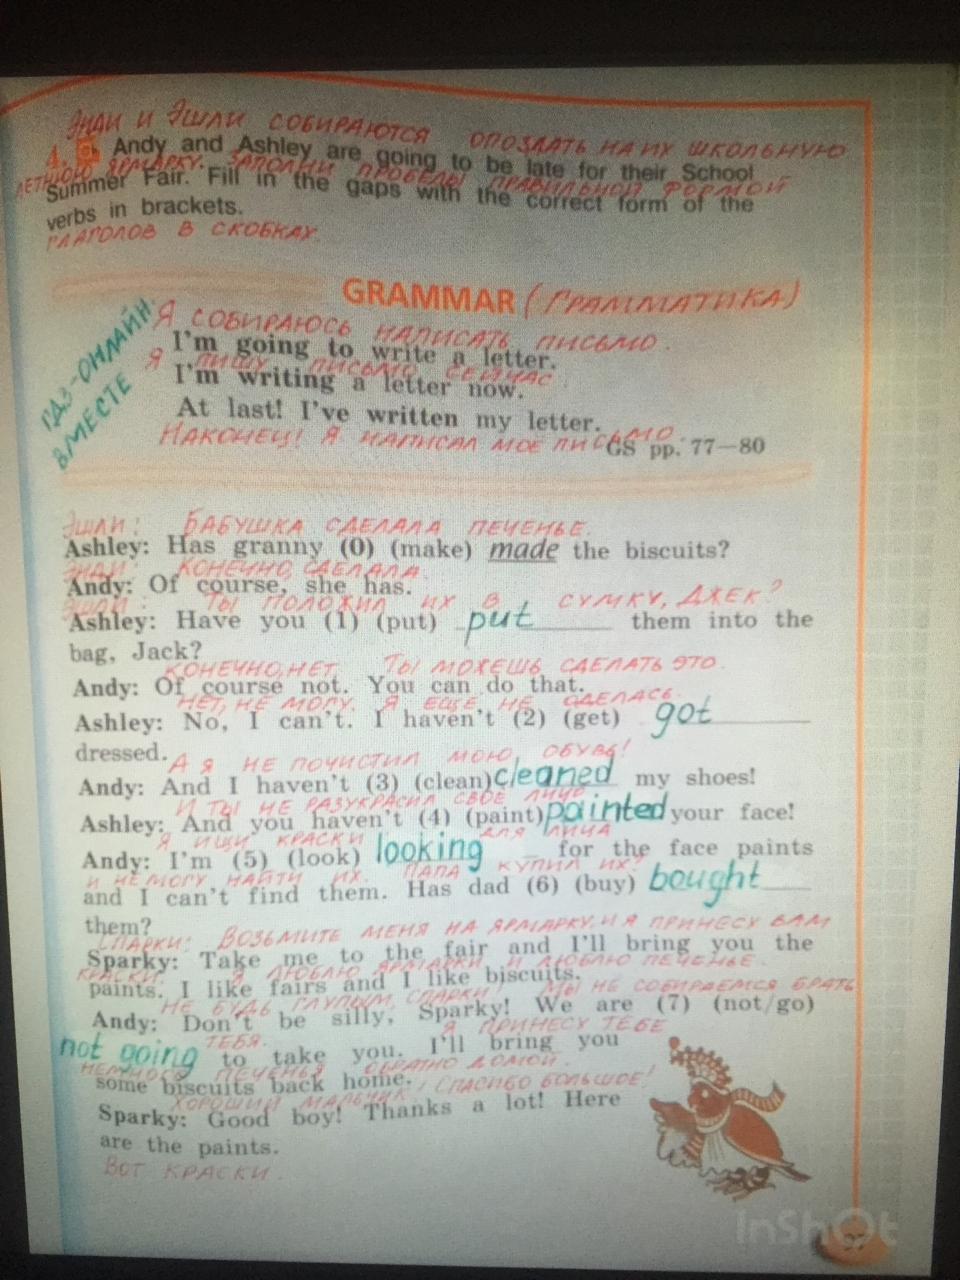 ЭНДИ И ЭШЛИ СОБИРАЮТСЯ ОПОЗДАТЬ НА ИХ ШКОЛЬНУЮ
4. Andy and Ashley are going to be late for their School
ЛЕТНЮЮ ЯРМАРКУ. ЗАПОЛНИ ПРОБЕЛЫ ПРАВИЛЬНОЙ ФОРМОЙ
Summer Fair. Fill in the gaps with the correct form of the
verbs in brackets.
ГЛАГОЛОВ В СКОБКАХ.
GRAMMAR (ГРАММАТИКА)
ГДЗ-ОНЛАЙН
ВМЕСТЕ
Я СОБИРАЮСЬ НАПИСАТЬ ПИСЬМО.
I'm going to write a letter.
Я ПИШУ ПИСЬМО СЕЙЧАС.
I'm writing a letter now.
At last! I've written my letter.
НАКОНЕЦ! Я НАПИСАЛ МОЕ ПИСЬМО.
GS pp. 77—80
ЭШЛИ: БАБУШКА СДЕЛАЛА ПЕЧЕНЬЕ.
Ashley: Has granny (0) (make) made the biscuits?
ЭНДИ: КОНЕЧНО, СДЕЛАЛА.
Andy: Of course, she has.
ЭШЛИ: ТЫ ПОЛОЖИЛ ИХ В СУМКУ, ДЖЕК?
Ashley: Have you (1) (put) put them into the
bag, Jack?
КОНЕЧНО, НЕТ. ТЫ МОЖЕШЬ СДЕЛАТЬ ЭТО.
Andy: Of course not. You can do that.
НЕТ, НЕ МОГУ. Я ЕЩЕ НЕ ОДЕЛАСЬ.
Ashley: No, I can't. I haven't (2) (get) got
dressed.
А Я НЕ ПОЧИСТИЛ МОЮ ОБУВЬ!
Andy: And I haven't (3) (clean) cleaned my shoes!
И ТЫ НЕ РАЗУКРАСИЛ СВОЕ ЛИЦО
Ashley: And you haven't (4) (paint) painted your face!
Я ИЩУ КРАСКИ ДЛЯ ЛИЦА
Andy: I'm (5) (look) looking for the face paints
И НЕ МОГУ НАЙТИ ИХ. ПАПА КУПИЛ ИХ?
and I can't find them. Has dad (6) (buy) bought
them?
СПАРКИ: ВОЗЬМИТЕ МЕНЯ НА ЯРМАРКУ, И Я ПРИНЕСУ ВАМ
Sparky: Take me to the fair and I'll bring you the
КРАСКИ. Я ЛЮБЛЮ ЯРМАРКИ И ЛЮБЛЮ ПЕЧЕНЬЕ.
paints. I like fairs and I like biscuits.
НЕ БУДЬ ГЛУПЫМ, СПАРКИ! МЫ НЕ СОБИРАЕМСЯ БРАТЬ
Andy: Don't be silly, Sparky! We are (7) (not/go)
ТЕБЯ. Я ПРИНЕСУ ТЕБЕ
not going to take you. I'll bring you
НЕМНОГО ПЕЧЕНЬЯ ОБРАТНО ДОМОЙ.
some biscuits back home.
ХОРОШИЙ МАЛЬЧИК, СПАСИБО БОЛЬШОЕ!
Sparky: Good boy! Thanks a lot! Here
are the paints.
ВОТ КРАСКИ.
InShOt